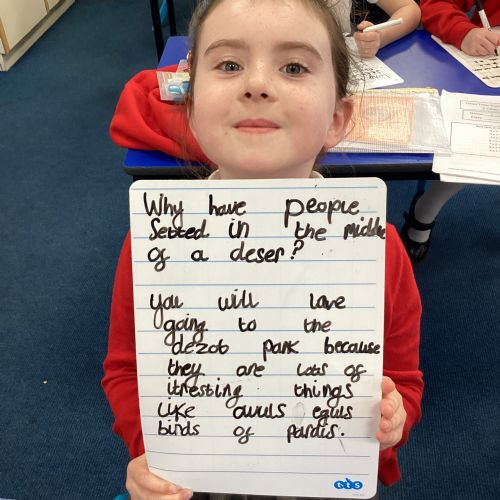 Why have people
Setted in the middle
of a deser?
you will love
going to the
dezot park because
they are lots of
itresting things
like owuls eguls
birds of pardis.
tts